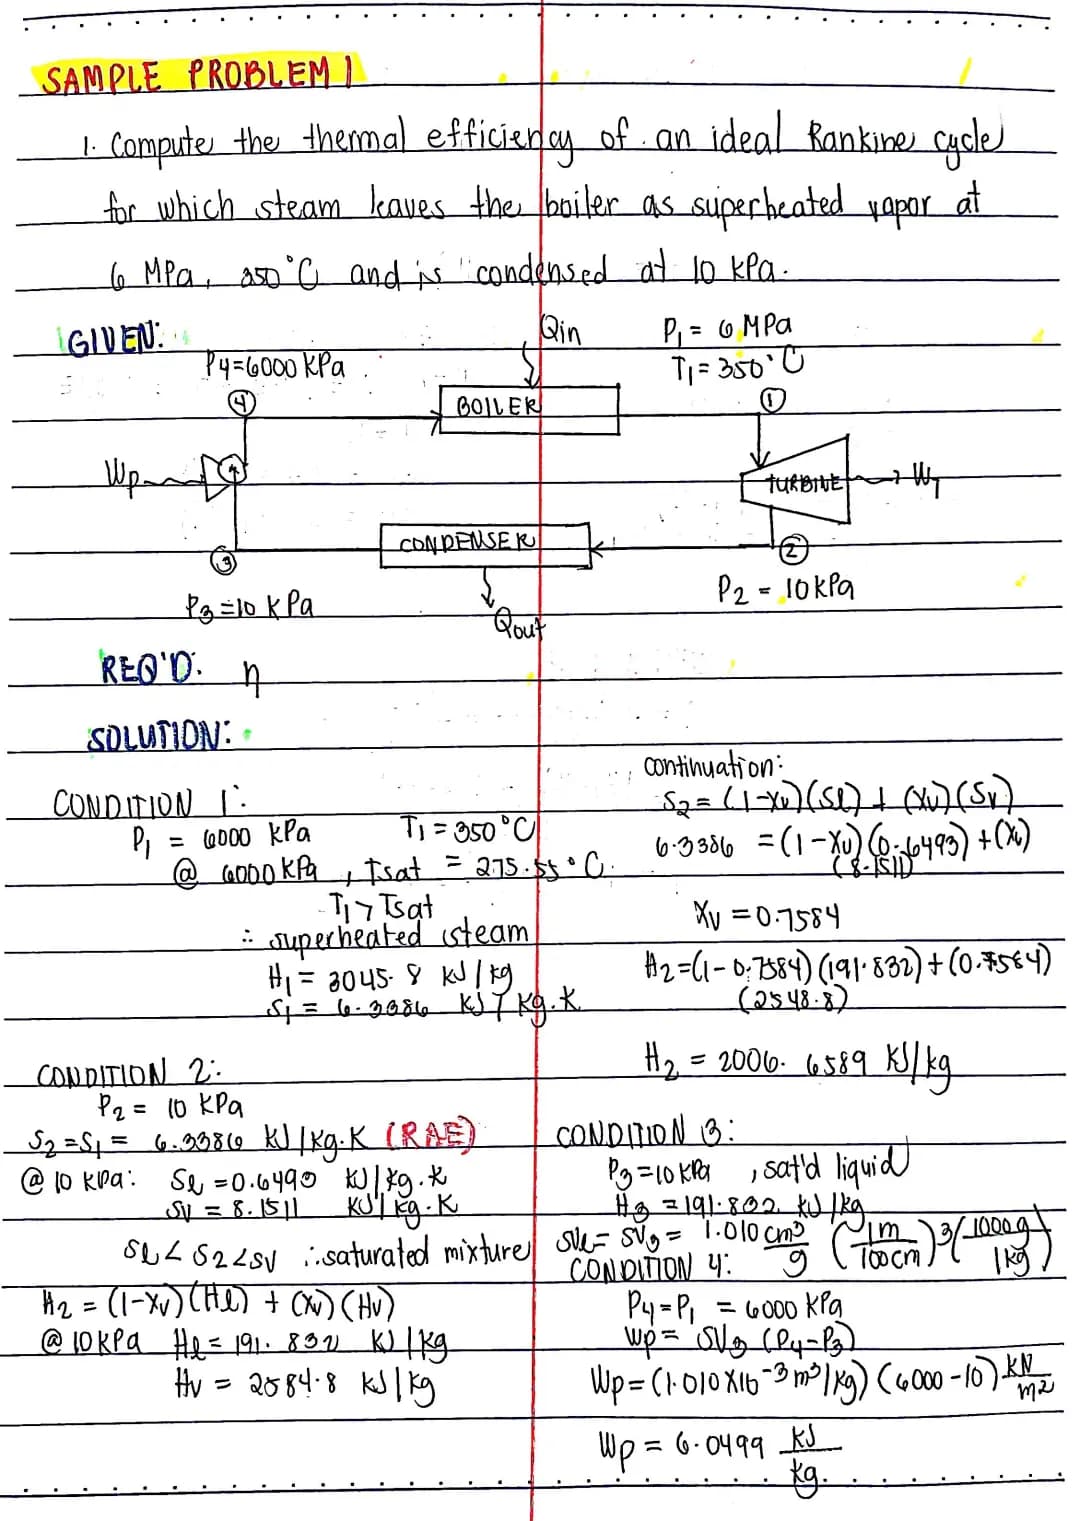 SAMPLE PROBLEM 1
1. Compute the thermal efficiency of an ideal Rankine cycle
for which steam leaves the boiler as superheated vapor at
6 MPa, 350°C and is condensed at 10 kPa.
GIVEN:
Qin
P1 = 6 MPa
T1 = 350°C
P4=6000 KPa
4
BOILER
1
Wp
TURBINE
WT
CONDENSER
3
2
P3=10 KPa
Qout
P2 = 10KPa
REQ'D: η
SOLUTION:
CONDITION 1:
P1 = 6000 KPa T1 = 350°C
@ 6000 KPa, Tsat = 275.55°C
T1 > Tsat
∴ superheated steam
H1 = 3045.8 KJ/kg
S1 = 6.3386 KJ/kg.K
CONDITION 2:
P2 = 10 KPa
S2=S1 = 6.3386 KJ/kg.K (RAE)
@ 10 KPa: Sl = 0.6493 KJ/kg.K
Sv = 8.1511 KJ/kg.K
Sl < S2 < Sv ∴ saturated mixture
H2 = (1-Xv)(Hl) + (Xv)(Hv)
@ 10KPa Hl = 191.832 KJ/kg
Hv = 2584.8 KJ/kg
continuation:
S2 = (1-Xv)(Sl) + (Xv)(Sv)
6.3386 = (1-Xv)(0.6493) + (Xv)
(8.1511)
Xv = 0.7584
H2=(1-0.7584)(191.832)+(0.7584)
(2548.8)
H2 = 2006.6589 KJ/kg
CONDITION 3:
P3=10KPa, sat'd liquid
H3 = 191.832 KJ/kg
SVl = SV3 = 1.010 cm³/g (1m/100cm)³(1000g/1kg)
CONDITION 4:
P4=P1 = 6000 KPa
Wp = SV3 (P4-P3)
Wp = (1.010X10-3 m³/kg)(6000-10) kN/m²
Wp = 6.0499 KJ/kg.